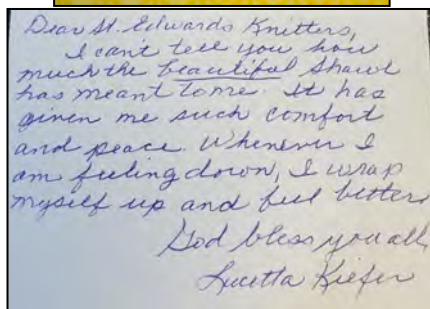 Dear St. Edwards Knitters,
I can't tell you how
much the beautiful shawl
has meant to me. It has
given me such comfort
and peace. Whenever I
am feeling down, I wrap
myself up and feel better.
God bless you all,
Lucetta Kiefer